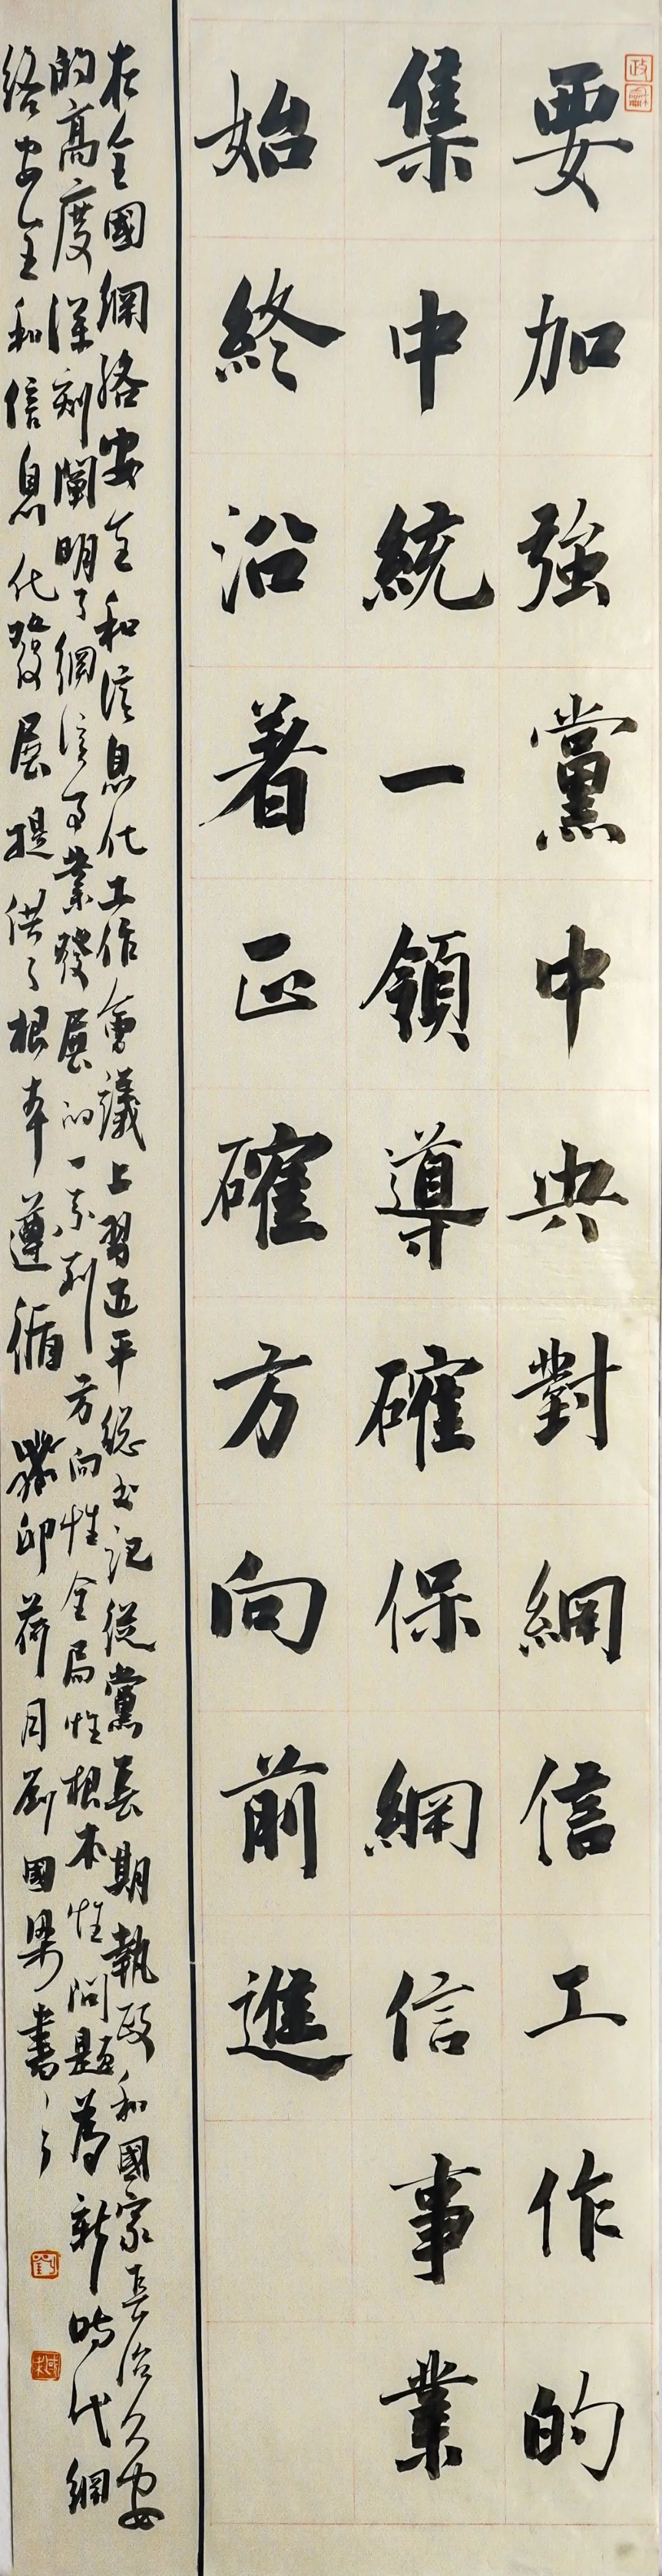 要加強黨中央對網信工作的
集中統一領導確保網信事業
始終沿着正確方向前進
在全國網絡安全和信息化工作會議上習近平總書記從黨長期執政和國家長治久安
的高度深刻闡明了網信事業發展的一系列方向性全局性根本性問題為新時代網
絡安全和信息化發展提供了根本遵循 癸卯荷月劉國梁書之